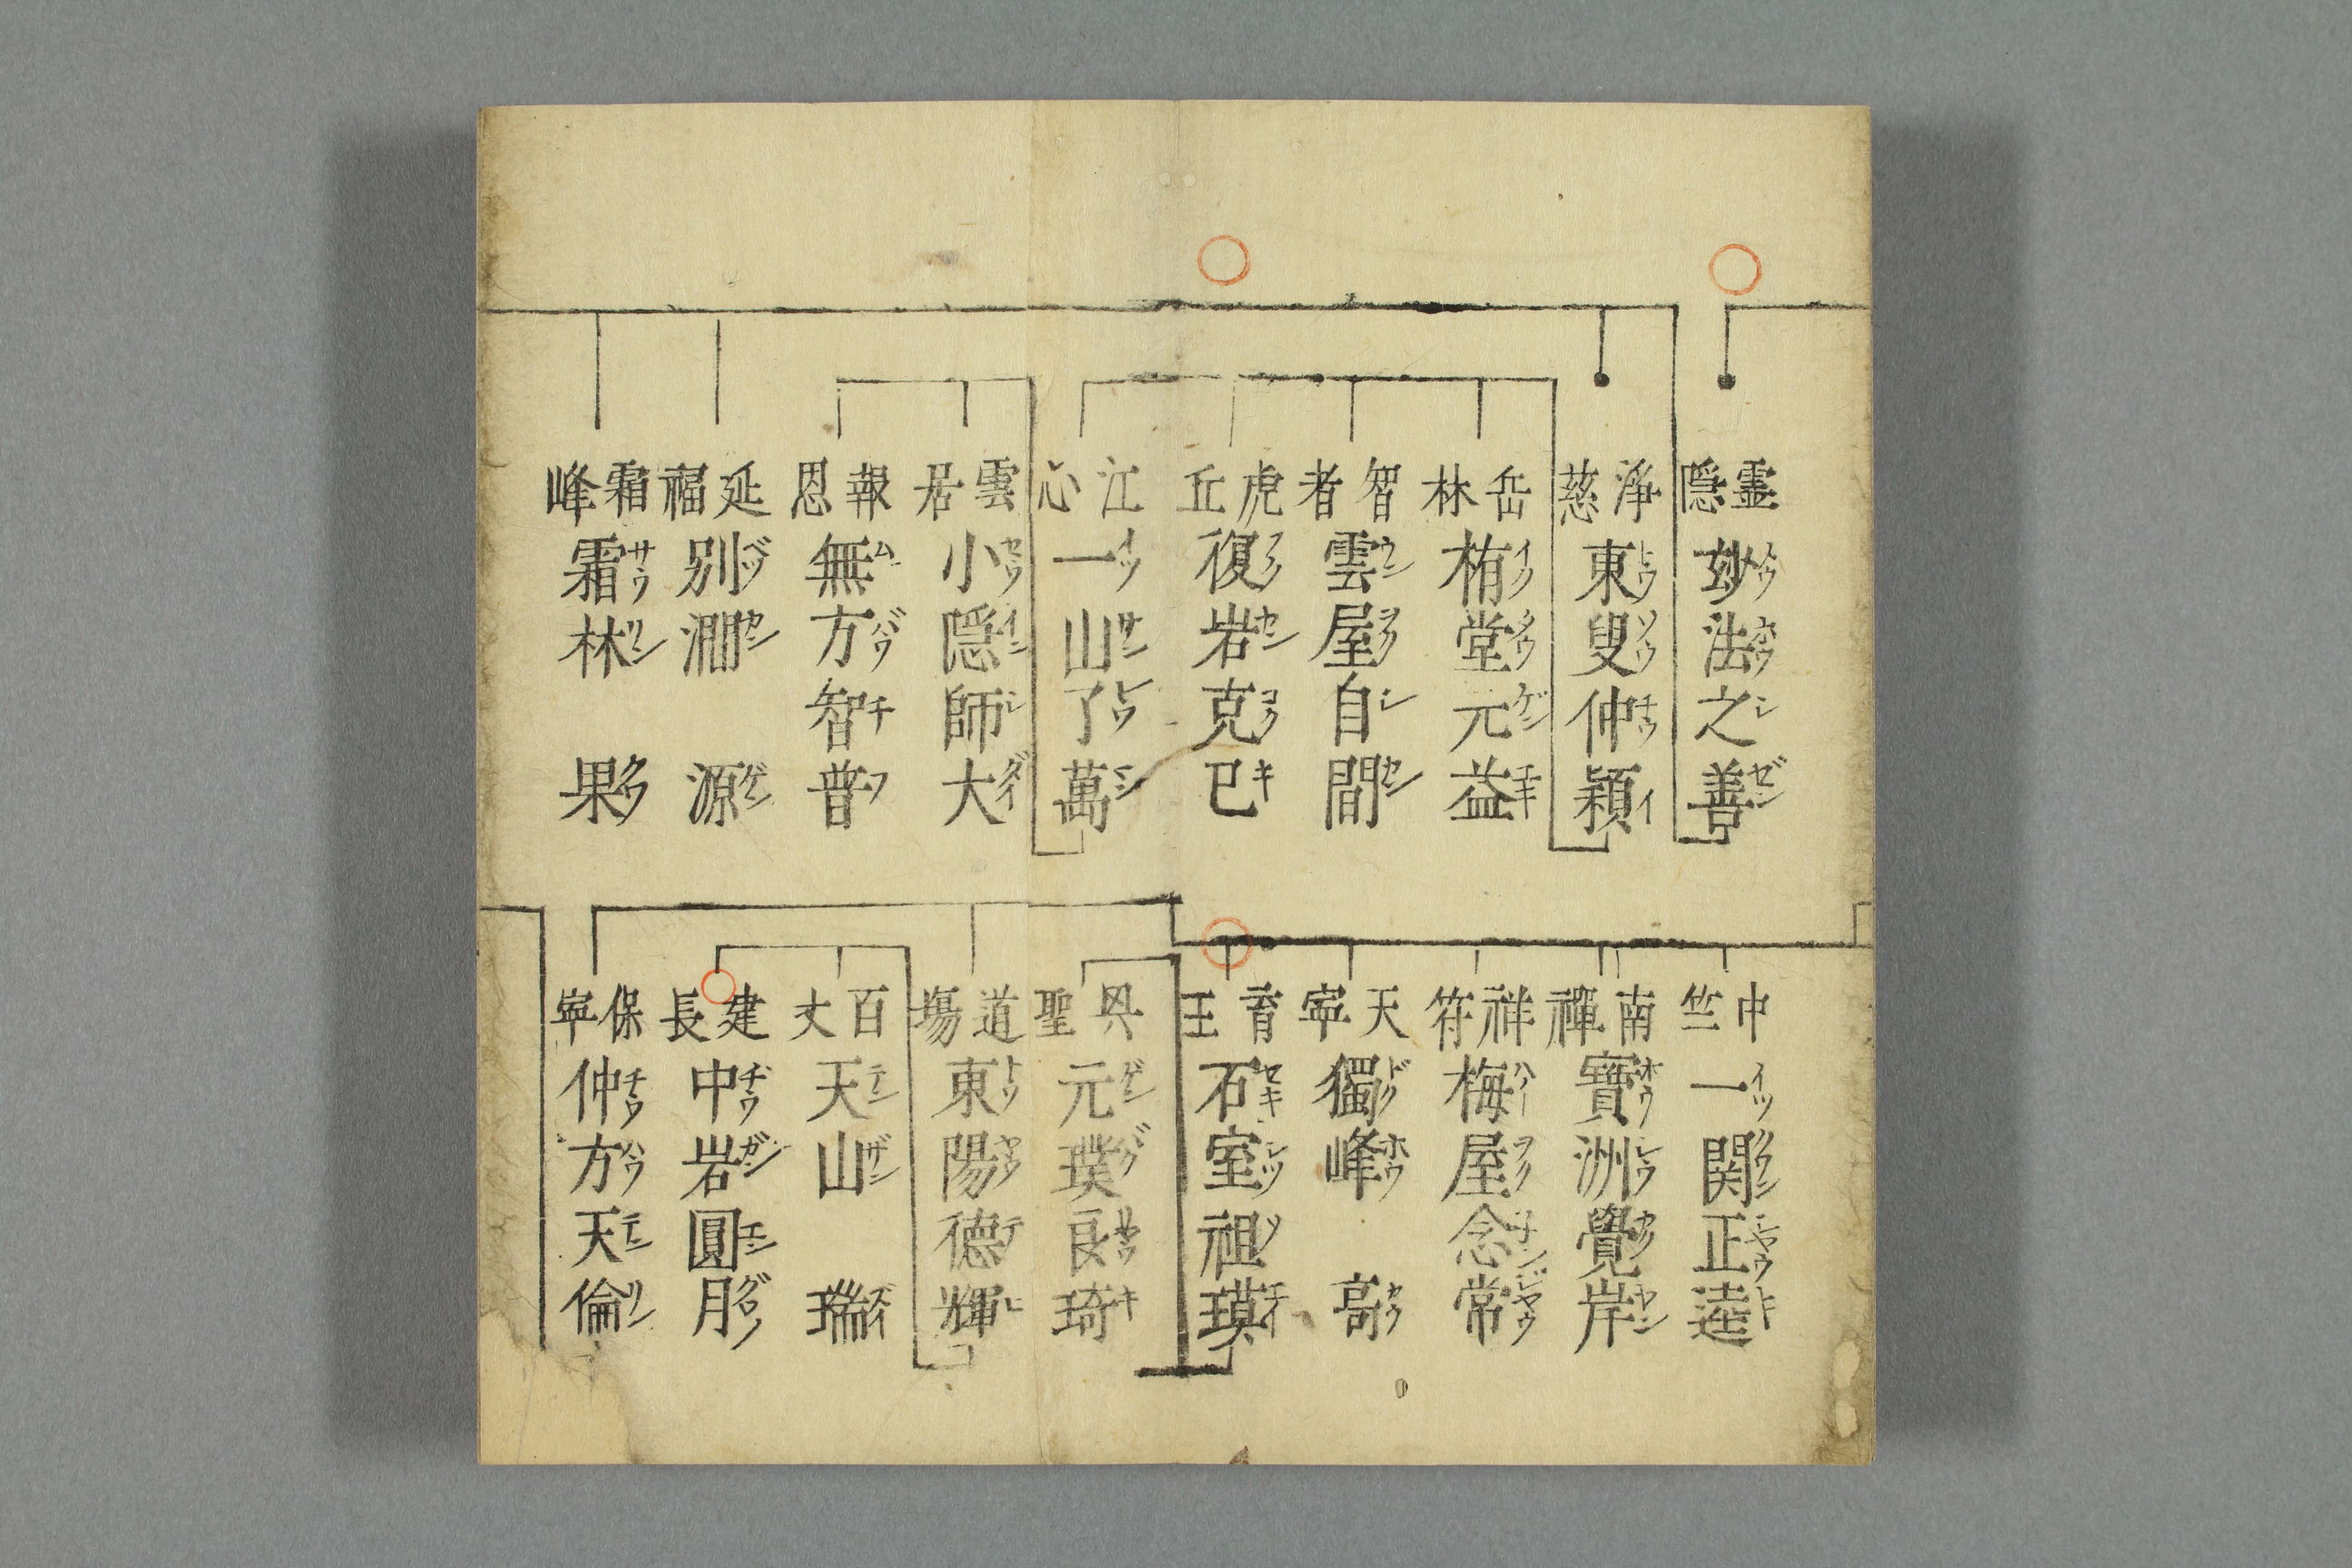 霊隠 妙法之善
浄慈 東叟仲穎
岳林 栯堂元益
智者 雲屋自閒
虎丘 復岩克己
江心 一山了萬
雲居 小隠師大
報恩 無方智普
延福 別㵎 源
霜峰 霜林 果
中竺 一関正逵
南禪 寳洲覺岸
祥符 梅屋念常
天寧 獨峰 高
育王 石室祖瑛
興聖 元璞良琦
道場 東陽德輝
百丈 天山 瑞
建長 中岩圓月
保寧 仲方天倫